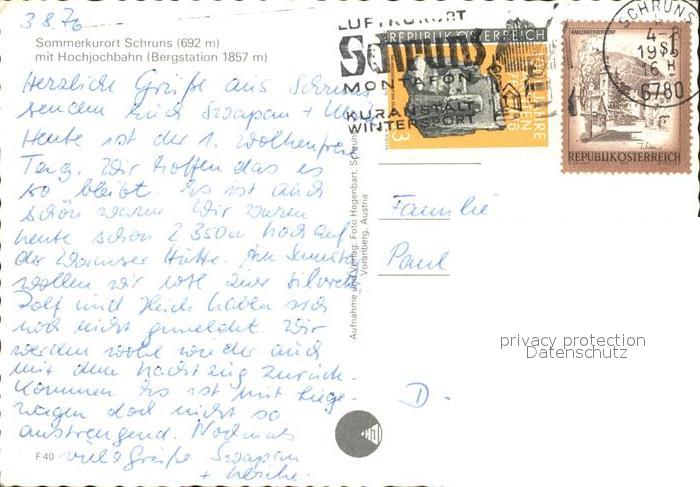 3.8.76
Sommerkurort Schruns (692 m)
mit Hochjochbahn (Bergstation 1857 m)
Herzliche Grüße aus Schruns
senden Euch
Heute ist der 1. Wolkenfreie
Tag. Wir hoffen das es
so bleibt. Es ist auch
schön warm. Wir waren
heute schon 2350m hoch auf
der Wormser Hütte. Am
wollen wir
Rolf und Heidi haben sich
noch nicht gemeldet. Wir
werden wohl wieder auch
mit dem Nachtzug zurück-
kommen. Es ist mit Liege-
wagen doch nicht so
anstrengend. Nochmals
viele Grüße
F 40
LUFTKURORT
Schruns
MONTAFON
KURANSTALT
WINTERSPORT
REPUBLIK ÖSTERREICH
SCHRUNS
19
16
6780
REPUBLIK ÖSTERREICH
Aufnahme und Verlag: Foto Hegenbart, Schruns
Vorarlberg, Austria
Familie
Paul
D-
privacy protection
Datenschutz